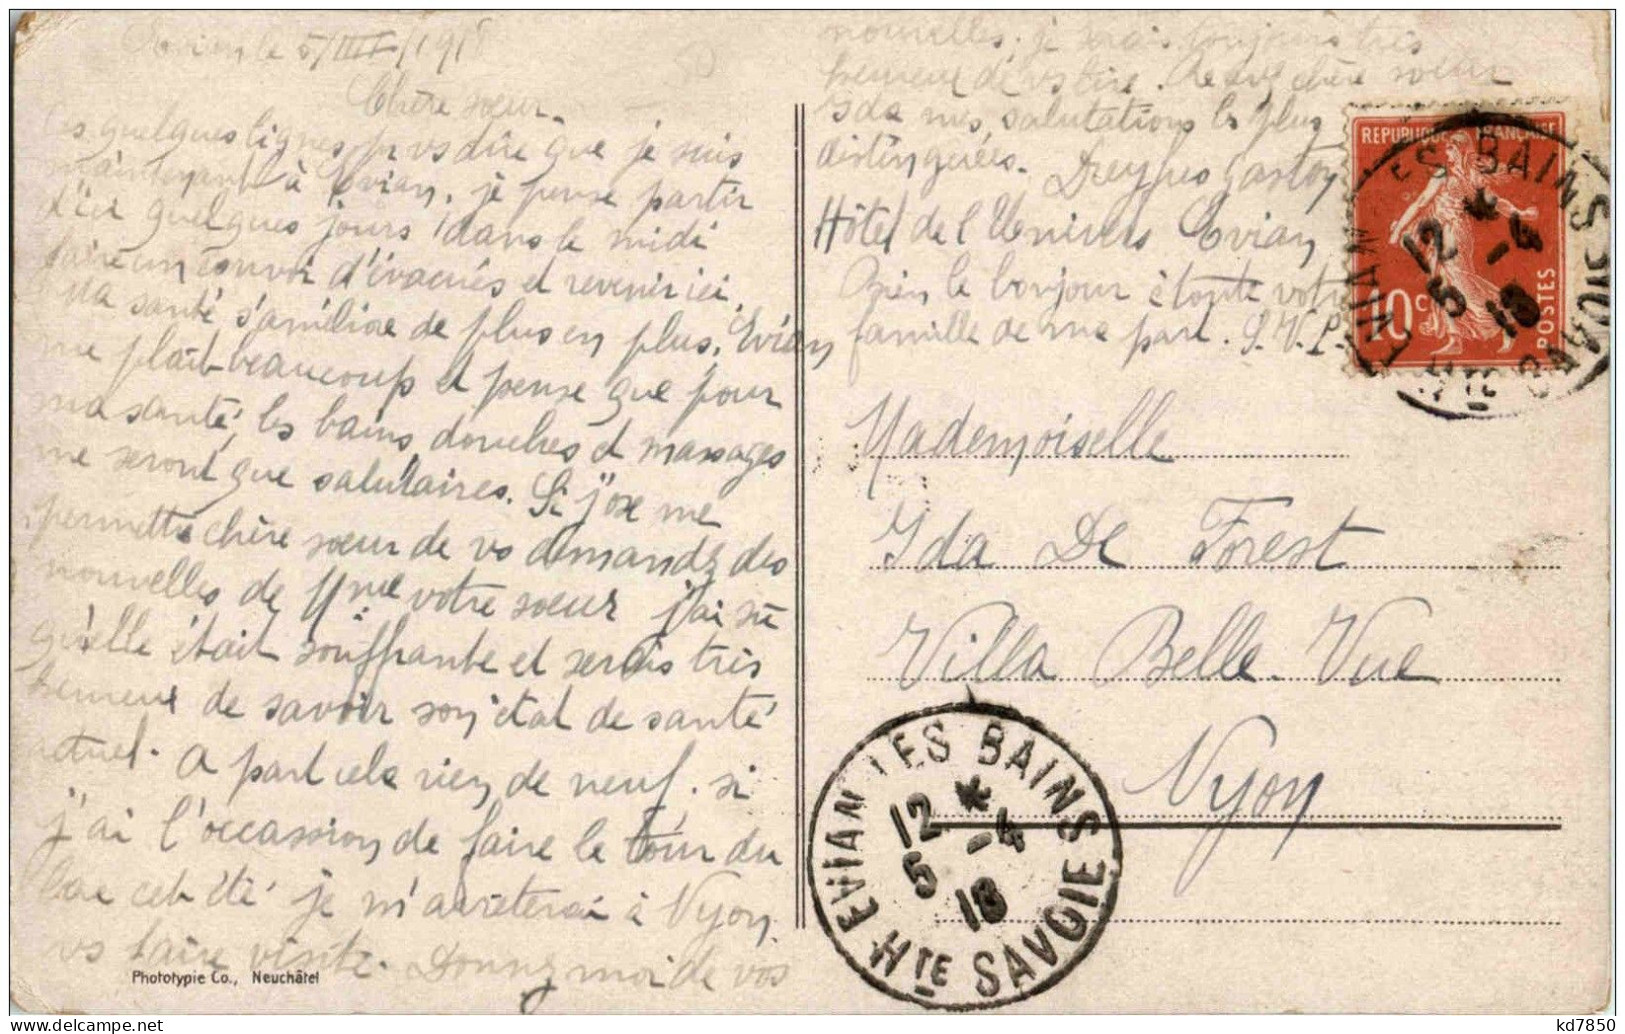 Evian le 5/IIII/1918
Chère soeur.
Ces quelques lignes pr vs dire que je suis
maintenant à Evian, je pense partir
d'ici quelques jours dans le midi
faire un convoi d'évacués et revenir ici.
Ma santé s'améliore de plus en plus, Evian
me plait beaucoup et pense que pour
ma santé, les bains, douches et massages
me seront que salutaires. Si j'ose me
permettre chère soeur de vs demandez des
nouvelles de Mme votre soeur j'ai sû
qu'elle était souffrante et serais très
heureux de savoir son état de santé
actuel. A part cela rien de neuf. si
j'ai l'occassion de faire le tour du
lac cet été je m'arrêterai à Nyon
vs faire visite. Donnez moi de vos
nouvelles, je serais toujours très
heureux de vs lire. Recevez chère soeur
Ida mes salutations les plus
distinguées. Dreyfus Gaston
Hôtel de l'Univers Evian
Bien le bonjour à toute votre
famille de ma part. S.V.P.
Mademoiselle
Ida De Forest
Villa Belle-Vue
Nyon
REPUBLIQUE FRANÇAISE
10 C
POSTES
EVIAN LES BAINS
12 * -4
5 18
HTE SAVOIE
EVIAN LES BAINS
12 * -4
5 18
HTE SAVOIE
Phototypie Co., Neuchâtel
kd7850